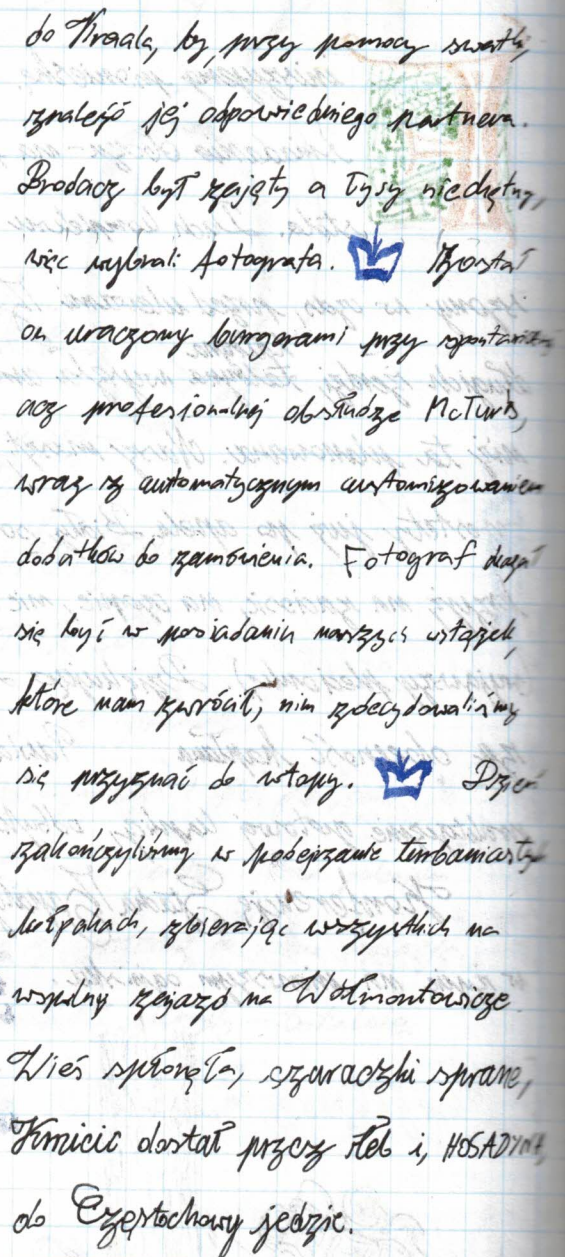 do Kraala, by, przy pomocy swatki,
znaleźć jej odpowiedniego partnera.
Brodacz był zajęty a Łysy niechętny,
więc wybrali fotografa. Został
on uraczony burgerami przy
acz profesionalnej obsłudze McTurb,
wraz z automatycznym customizowaniem
dodatków do zamówienia. Fotograf
się być w posiadaniu naszych wstążek,
które nam zwrócił, nim zdecydowaliśmy
się przyznać do wtopy. Dzień
zakończyliśmy w
kołpakach, zbierając wszystkich na
wspólny zajazd na Wołmontowicze.
Wieś spłonęła, szaraczki sprane,
Kmicic dostał przez łeb i,
do Częstochowy jedzie.